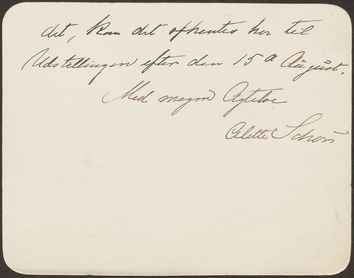 det, kan det afhentes her til
Udstillingen efter den 15de August.
Med megen Agtelse
Schou